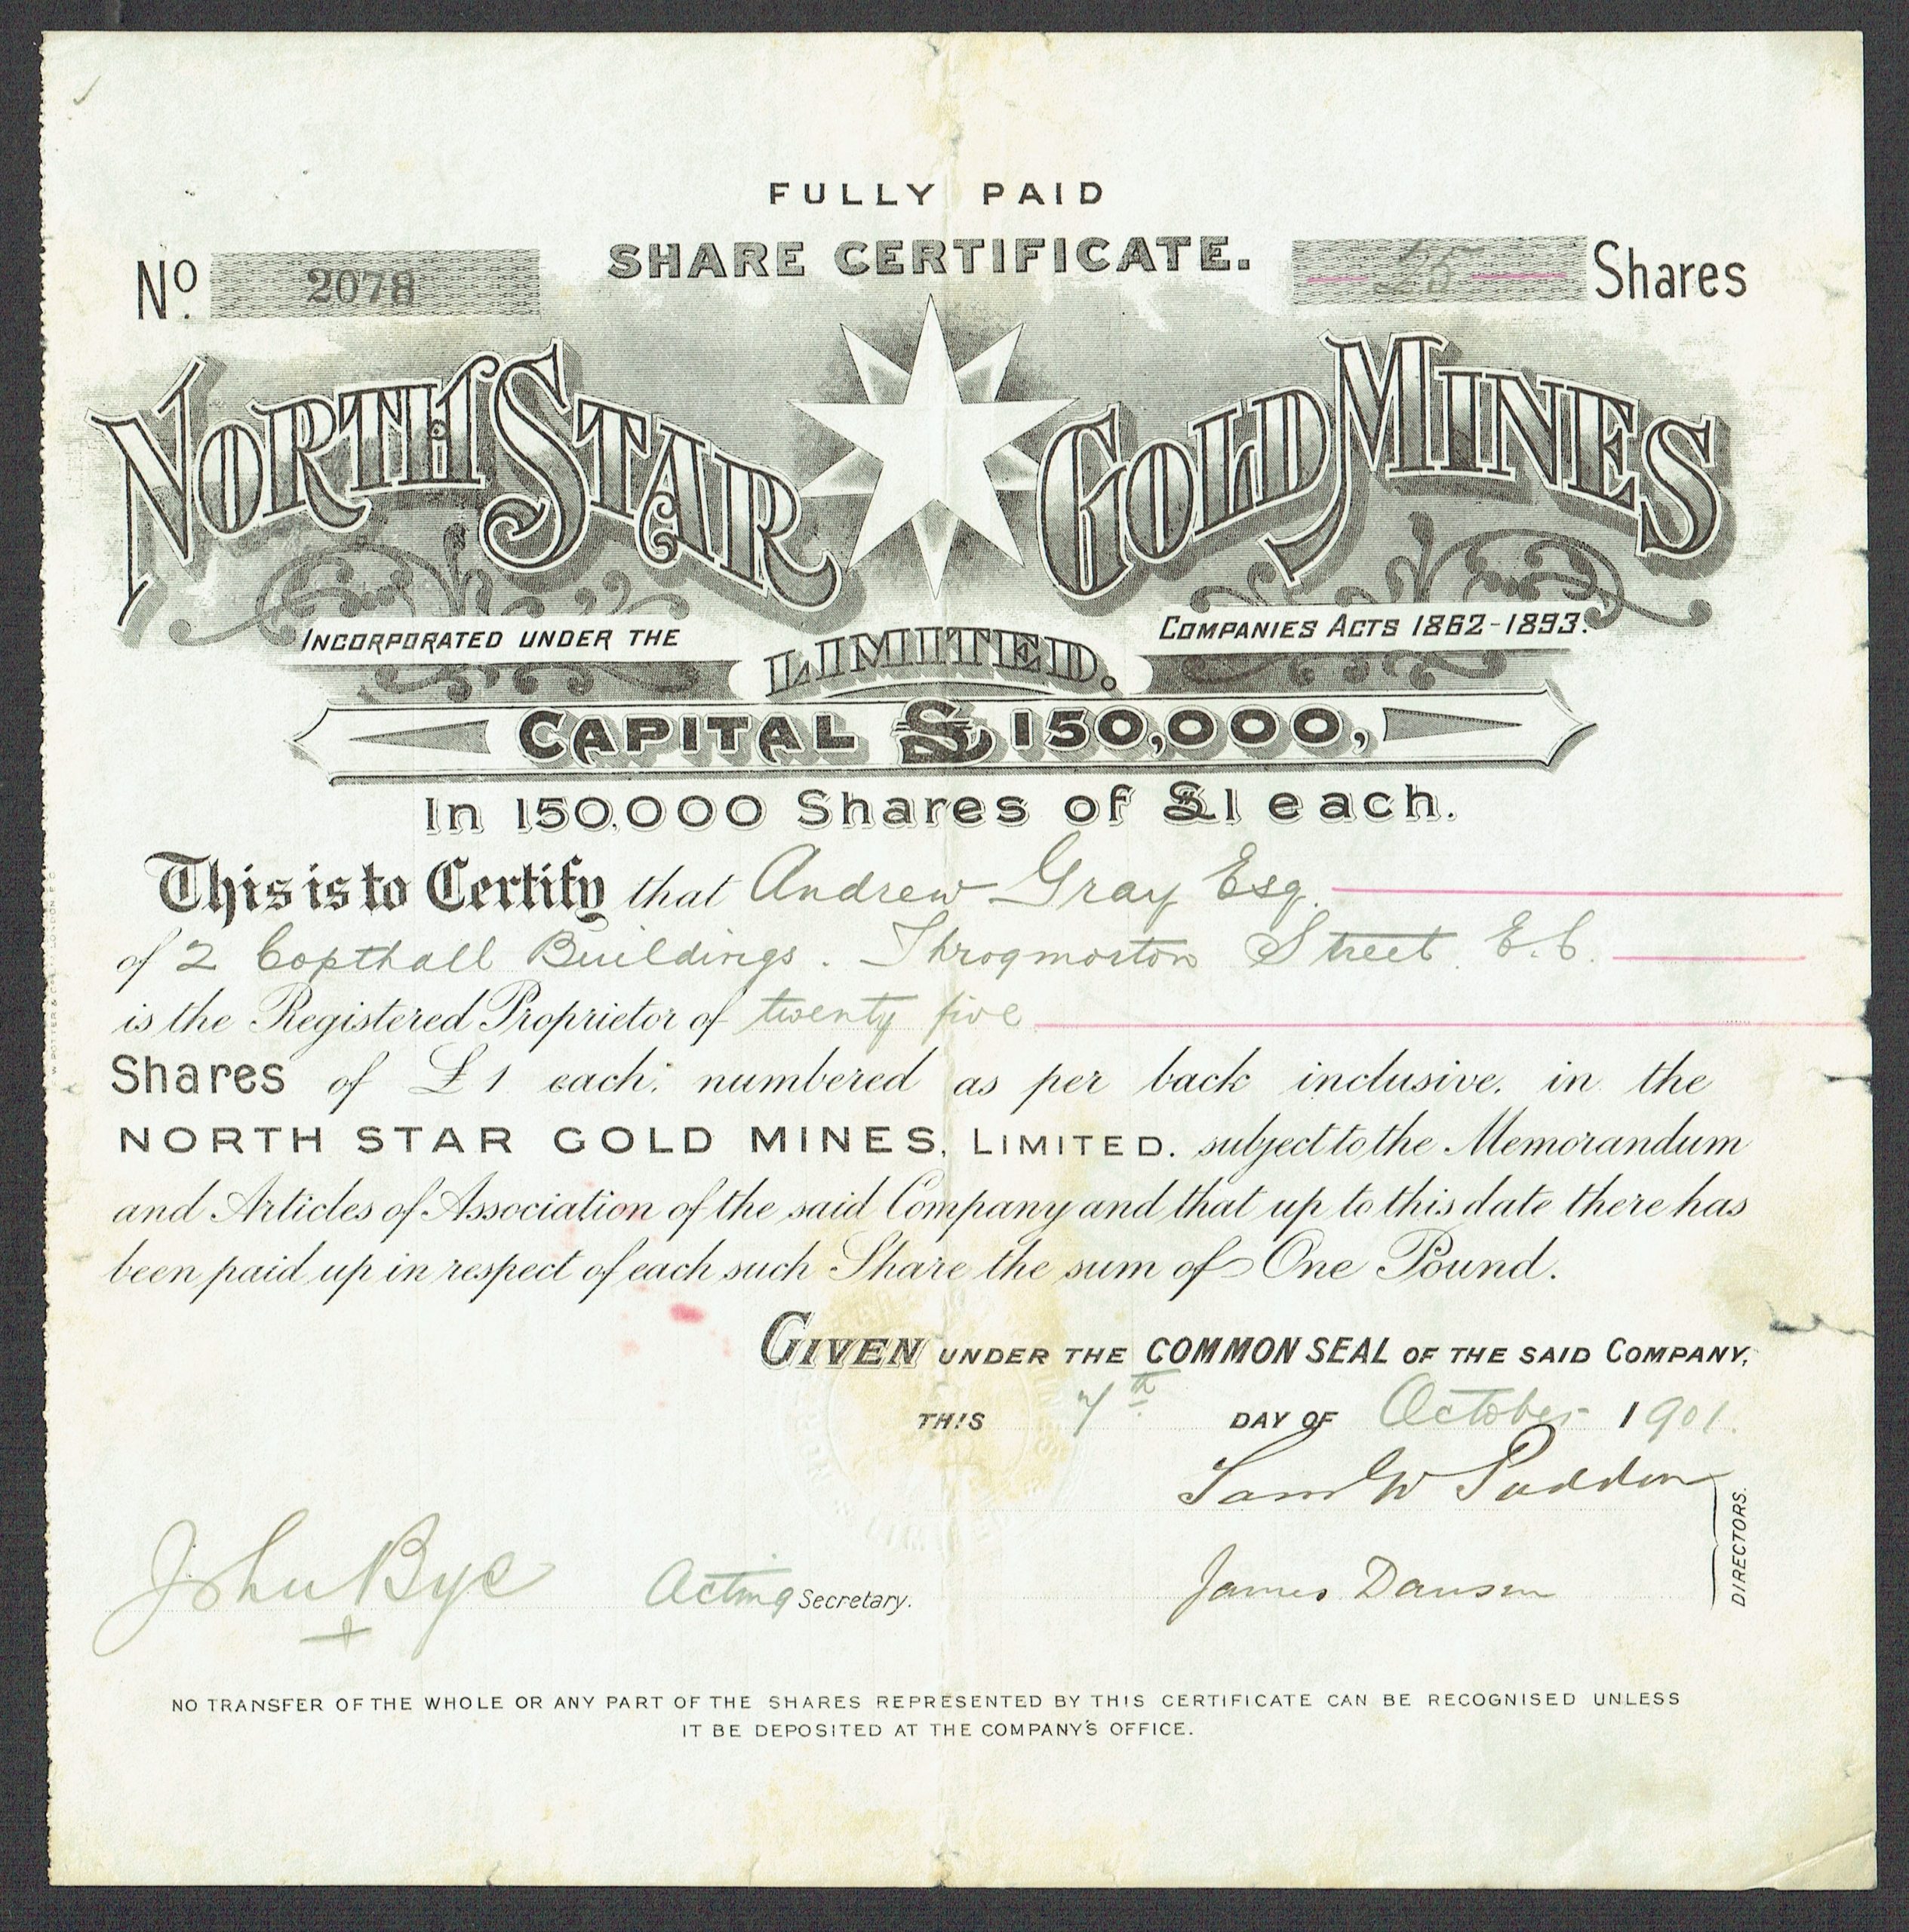 FULLY PAID
SHARE CERTIFICATE.
No. 2078
25 Shares
NORTH STAR GOLD MINES
INCORPORATED UNDER THE COMPANIES ACTS 1862-1893.
LIMITED.
CAPITAL £150,000,
In 150,000 Shares of £1 each.
This is to Certify that Andrew Gray Esq.
of 2 Copthall Buildings. Throgmorton Street. E.C.
is the Registered Proprietor of twenty five
Shares of £1 each: numbered as per back inclusive, in the
NORTH STAR GOLD MINES, LIMITED. subject to the Memorandum
and Articles of Association of the said Company and that up to this date there has
been paid up in respect of each such Share the sum of One Pound.
GIVEN UNDER THE COMMON SEAL OF THE SAID COMPANY,
THIS 7th DAY OF October 1901.
James Dawson
DIRECTORS.
John Bye Acting Secretary.
NO TRANSFER OF THE WHOLE OR ANY PART OF THE SHARES REPRESENTED BY THIS CERTIFICATE CAN BE RECOGNISED UNLESS
IT BE DEPOSITED AT THE COMPANY'S OFFICE.